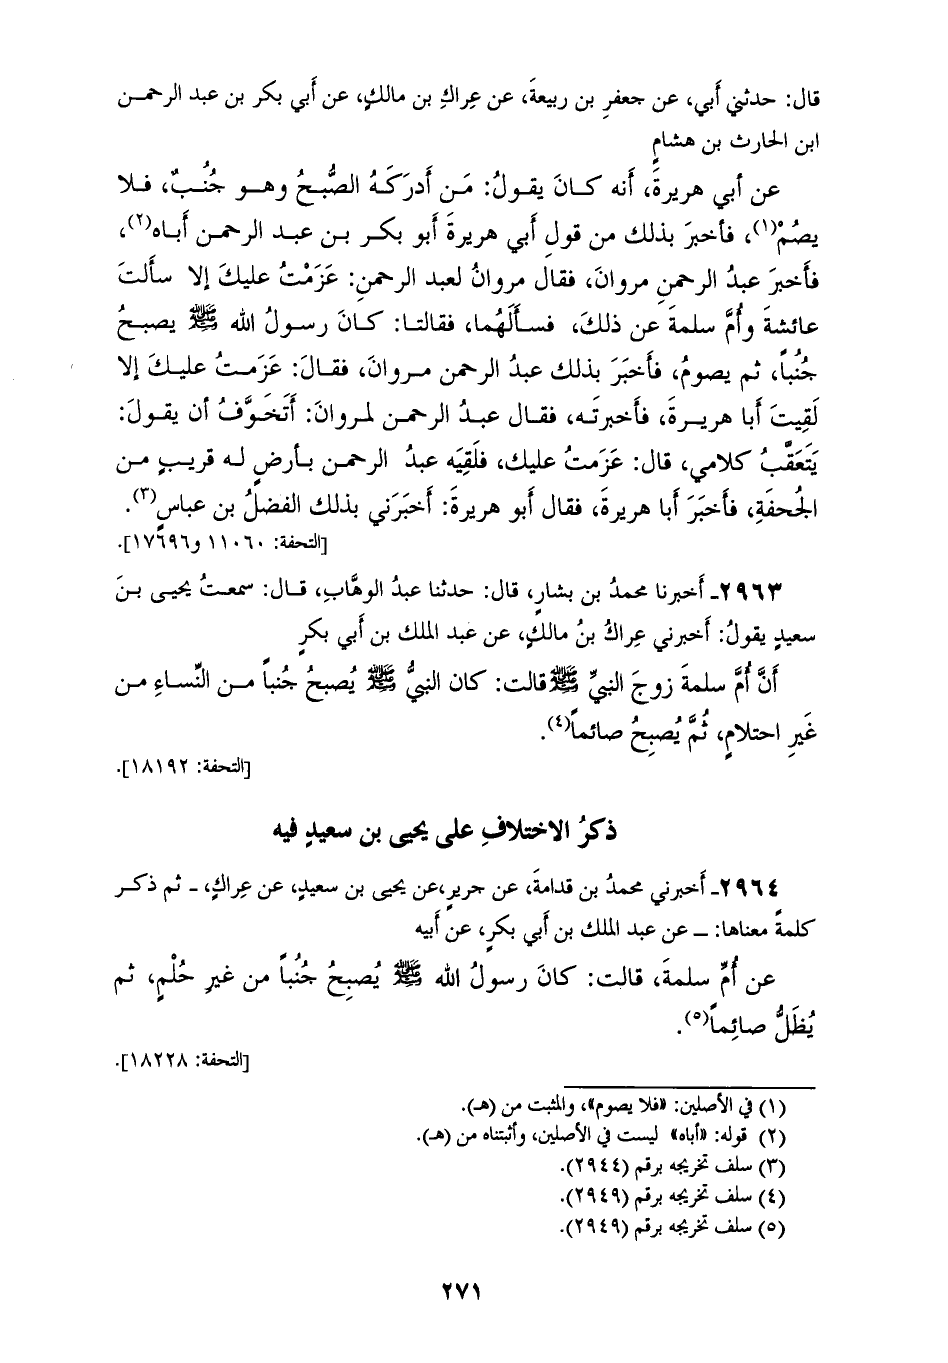 قال: حدثني أبي، عن جعفرِ بن ربيعةَ، عن عِراكِ بن مالكٍ، عن أبي بكر بن عبد الرحمن
ابن الحارث بن هشامٍ
عن أبي هريرةَ، أنه كانَ يقولُ: مَن أَدرَكَهُ الصُّبحُ وهو جُنُبٌ، فلا
يصُمْ(١)، فأخبرَ بذلك من قولِ أبي هريرةَ أبو بكر بن عبد الرحمن أباه(٢)،
فأَخبرَ عبدُ الرحمنِ مروانَ، فقال مروانُ لعبد الرحمنِ: عَزَمْتُ عليكَ إلا سألتَ
عائشةَ وأُمَّ سلمةَ عن ذلكَ، فسأَلَهُما، فقالتا: كانَ رسولُ الله ﷺ يصبحُ
جُنُباً، ثم يصومُ، فأَخبَرَ بذلك عبدُ الرحمن مروانَ، فقالَ: عَزَمتُ عليكَ إلا
لَقِيتَ أبا هريرةَ، فأخبرتَه، فقال عبدُ الرحمن لمروانَ: أتَخَوَّفُ أن يقولَ:
يَتَعَقَّبُ كلامي، قال: عَزَمتُ عليك، فلَقِيَه عبدُ الرحمن بأرضٍ له قريبٍ من
الجُحفَةِ، فأخبَرَ أبا هريرةَ، فقال أبو هريرةَ: أخبَرَني بذلك الفضلُ بن عباسٍ(٣).
[التحفة: ١١٠٦٠ و١٧٦٩٦].
٢٩٦٣ـ أخبرنا محمدُ بن بشارٍ، قال: حدثنا عبدُ الوهَّابِ، قال: سمعتُ يحيى بنَ
سعيدٍ يقولُ: أخبرني عِراكُ بنُ مالكٍ، عن عبد الملك بن أبي بكرٍ
أَنَّ أُمَّ سلمةَ زوجَ النبيِّ ﷺ قالت: كان النبيُّ ﷺ يُصبحُ جُنباً من النِّساءِ من
غَيرِ احتلامٍ، ثُمَّ يُصبِحُ صائماً(٤).
[التحفة: ١٨١٩٢].
ذكرُ الاختلافِ على يحيى بن سعيدٍ فيه
٢٩٦٤ـ أخبرني محمدُ بن قدامةَ، عن جريرٍ،عن يحيى بن سعيدٍ، عن عِراكٍ، ـ ثم ذكر
كلمةً معناها: ـ عن عبد الملك بن أبي بكرٍ، عن أبيه
عن أُمِّ سلمةَ، قالت: كانَ رسولُ الله ﷺ يُصبِحُ جُنُباً من غيرِ حُلْمٍ، ثم
يُظَلُّ صائِماً(٥).
[التحفة: ١٨٢٢٨].
(١) في الأصلين: «فلا يصوم»، والمثبت من (هـ).
(٢) قوله: «أباه» ليست في الأصلين، وأثبتناه من (هـ).
(٣) سلف تخريجه برقم (٢٩٤٤).
(٤) سلف تخريجه برقم (٢٩٤٩).
(٥) سلف تخريجه برقم (٢٩٤٩).
٢٧١